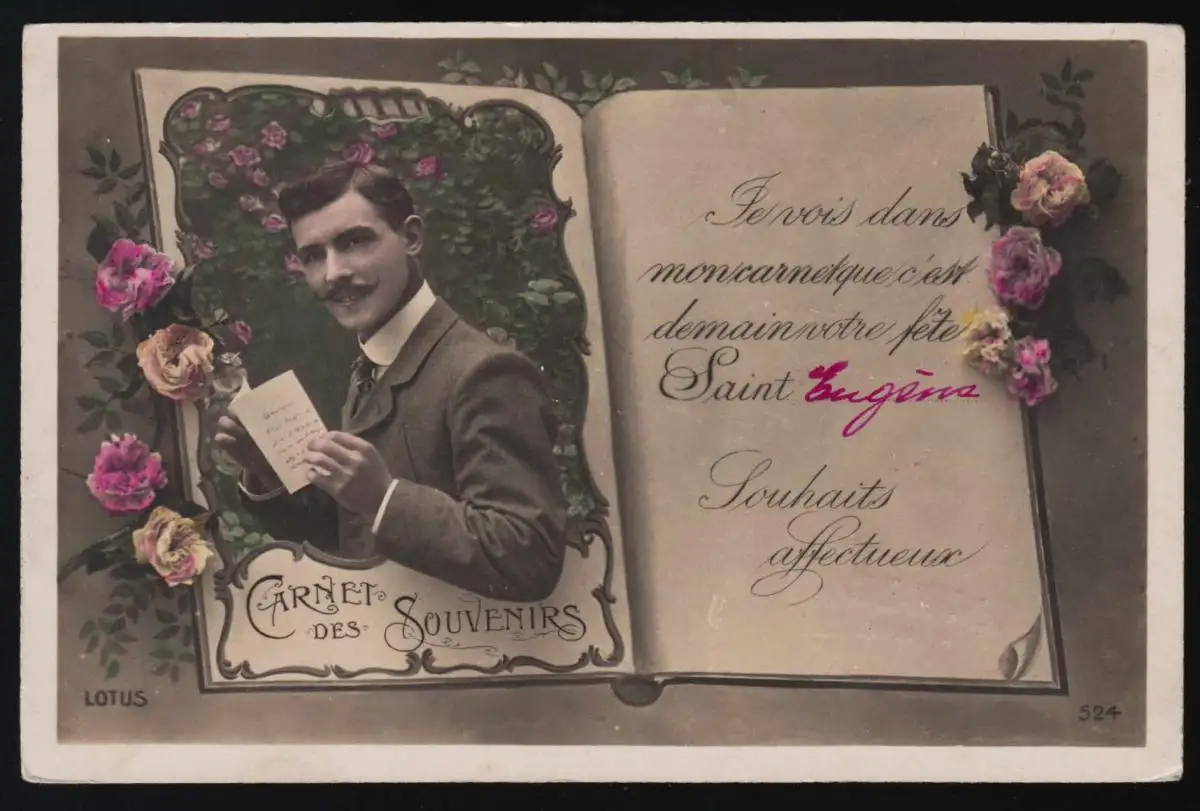 CARNET
DES SOUVENIRS
Je vois dans
mon carnet que c'est
demain votre fête
Saint Eugène
Souhaits
affectueux
LOTUS
524